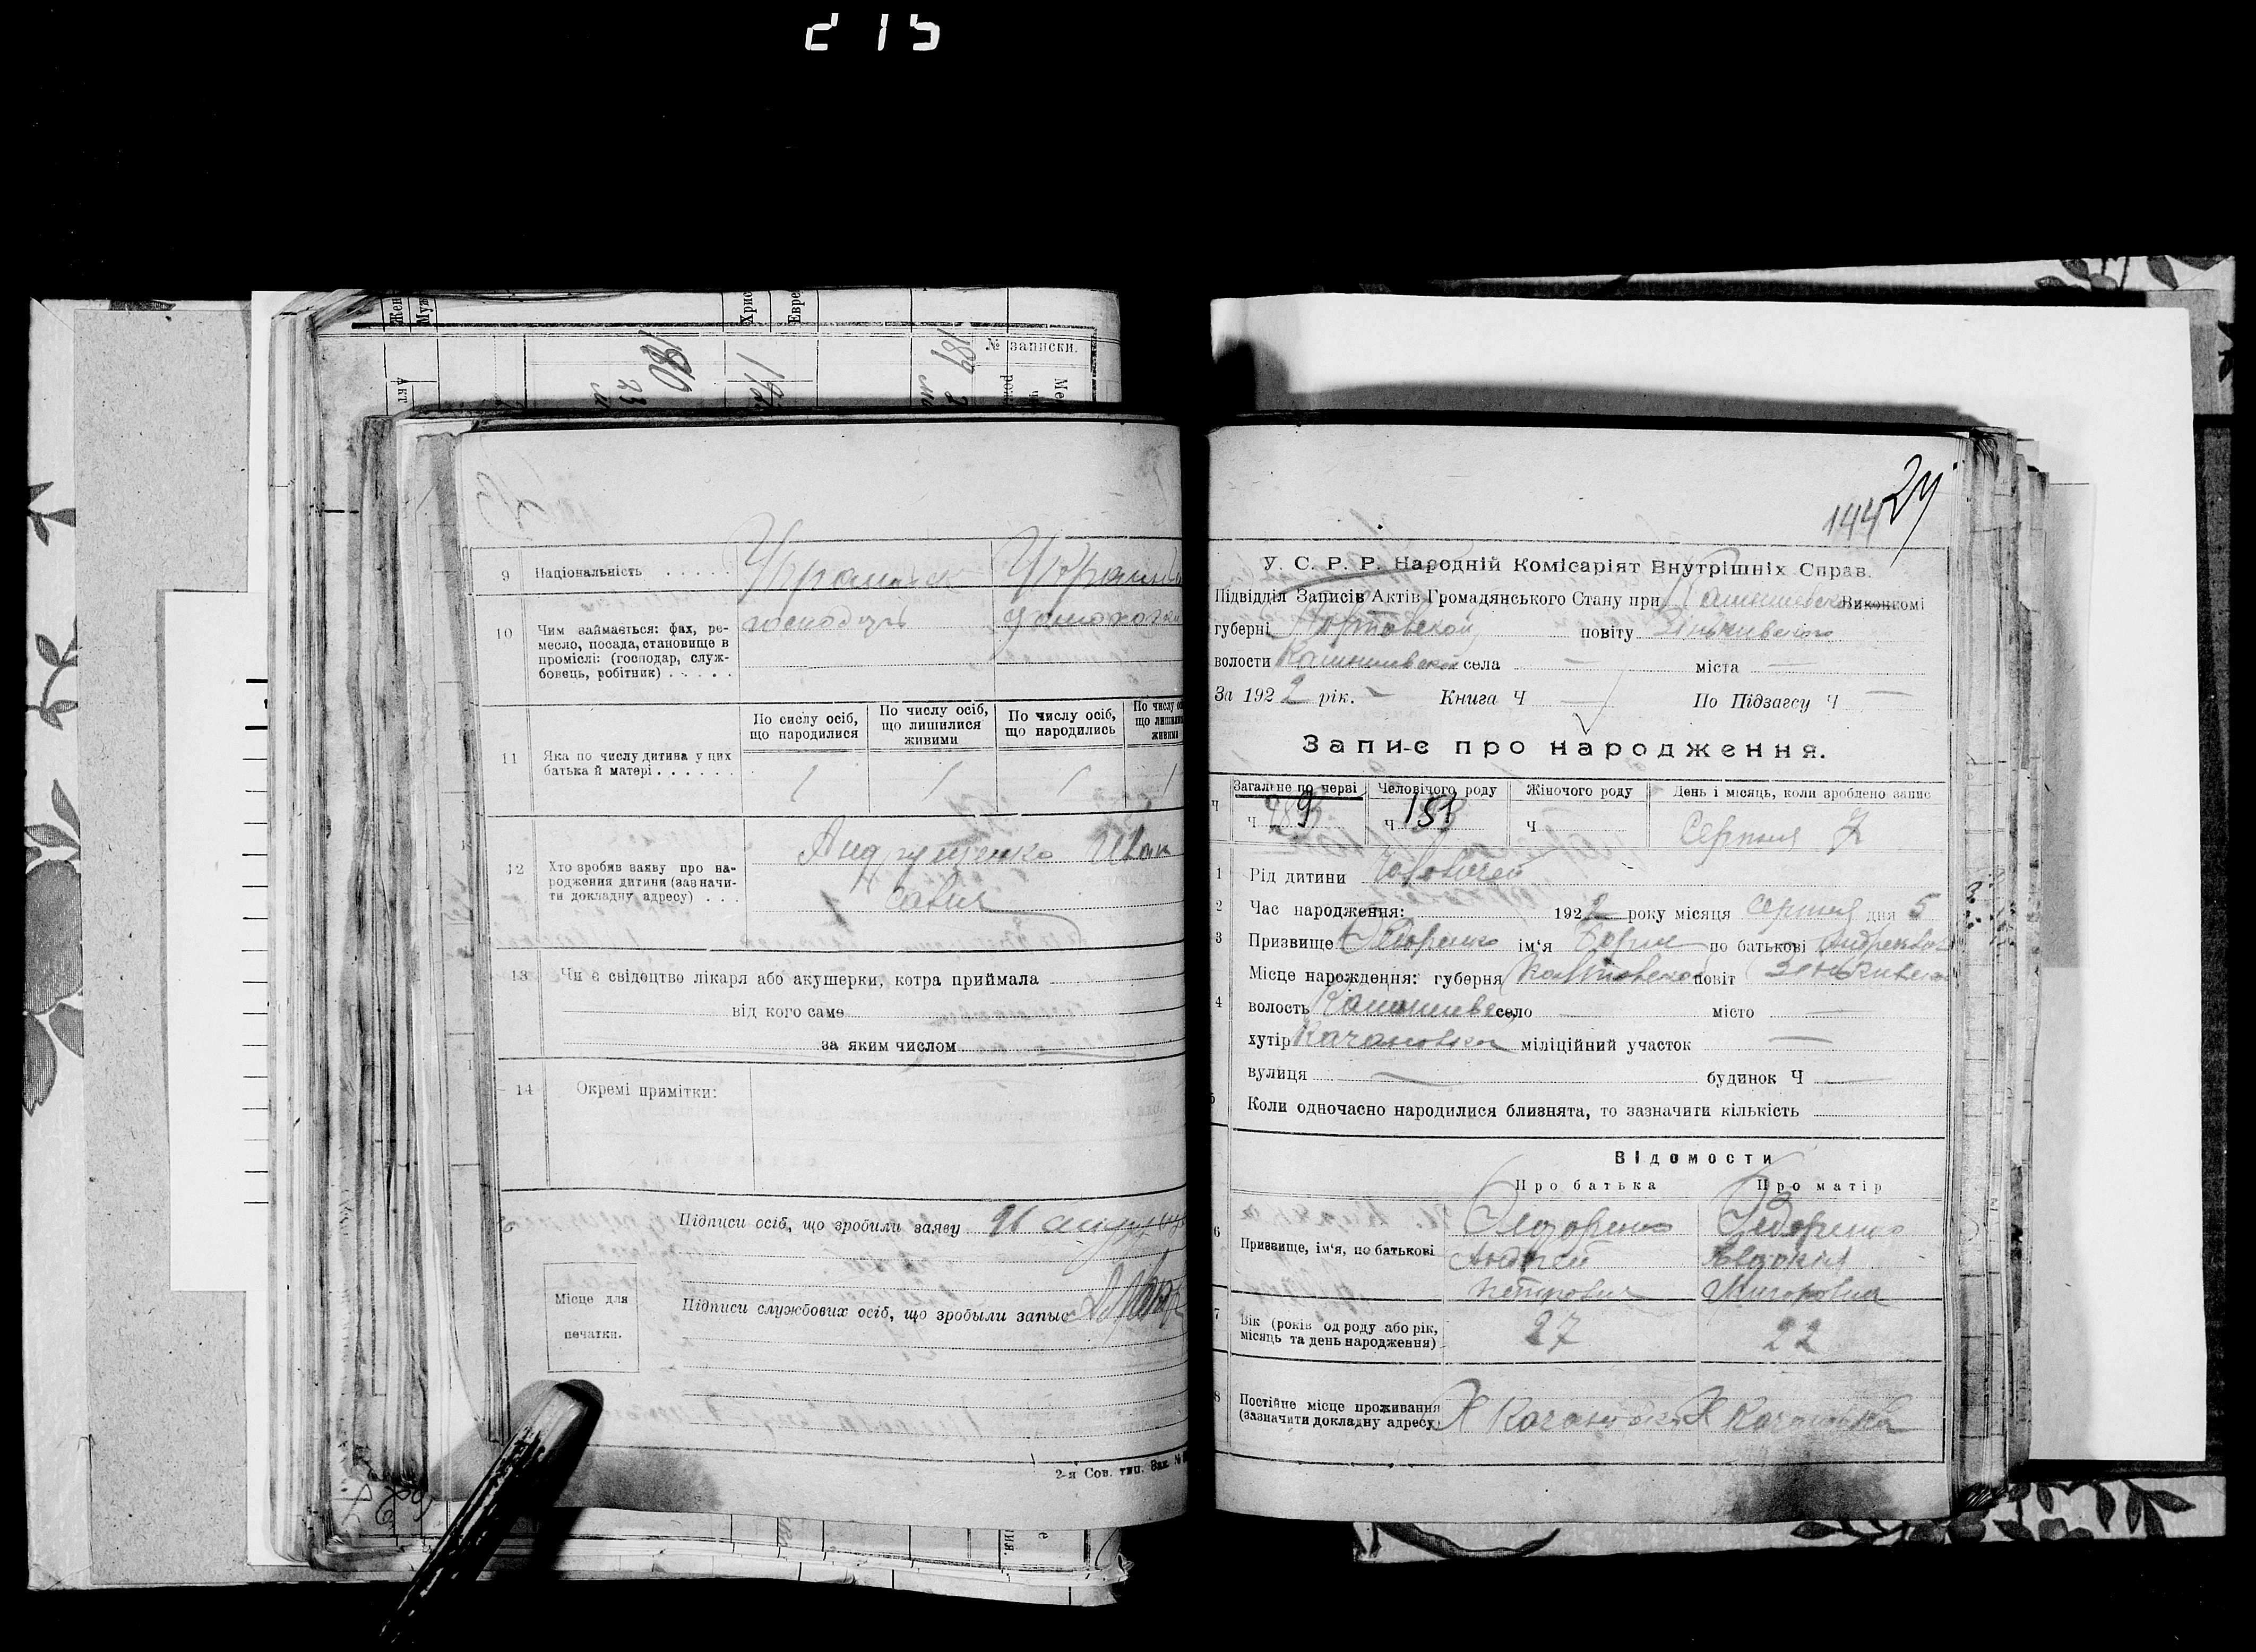 215
Жен
Муж
Хрис
Евре
№ записки.
180
23
189
Акт
9 Національність . . . . .
господарь
10 Чим займається: фах, ре-
месло, посада, становище в
промислі: (господар, служ-
бовець, робітник) . . . . .
11 Яка по числу дитина у цих
батька й матері . . . . . .
По сислу осіб,
що народилися
По числу осіб,
що лишилися
живими
По числу осіб,
що народились
По числу ос
що лишили
живими
1 1 1 1
12 Хто зробив заяву про на-
родження дитини (зазначи-
ти докладну адресу) . . .
Андрущенко Иван
Савич
13 Чи є свідоцтво лікаря або акушерки, котра приймала
від кого саме
за яким числом
14 Окремі примітки:
Підписи осіб, що зробили заяву
Місце для
печатки.
Підписи службових осіб, що зробыли запыс
2-я Сов. тип. Зак. №
144 24
У. С. Р. Р. Народній Комісаріят Внутрішніх Справ.
Підвідділ Записів Актів Громадянського Стану при Виконкомі
губерні Полтовской повіту Зіньковского
волости села — міста —
За 1922 рік. — Книга Ч — По Підзагсу Ч —
Запис про народження.
Загальне по черзі
Человічого роду
Жіночого роду
День і місяць, коли зроблено запис
Ч Ч Ч Серпня 7
1 Рід дитини Чоловичей
2 Час народження: 1922 року місяця Серпня дня 5
3 Призвище Федоренко ім'я Борис по батькові Андреевич
4 Місце народження: губерня Полтовской повіт Зеньковско
волость село — місто —
хутір Качановка міліційний участок —
вулиця — будинок Ч —
5 Коли одночасно народилися близнята, то зазначити кількість
Відомости
Про батька Про матір
6 Призвище, ім'я, по батькові
Федоренко Федоренко
Андрей Явдокия
Петрович
7 Вік (років од роду або рік,
місяць та день народження)
27 22
8 Постійне місце проживання
(зазначити докладну адресу)
Х Качановка Х Качановка